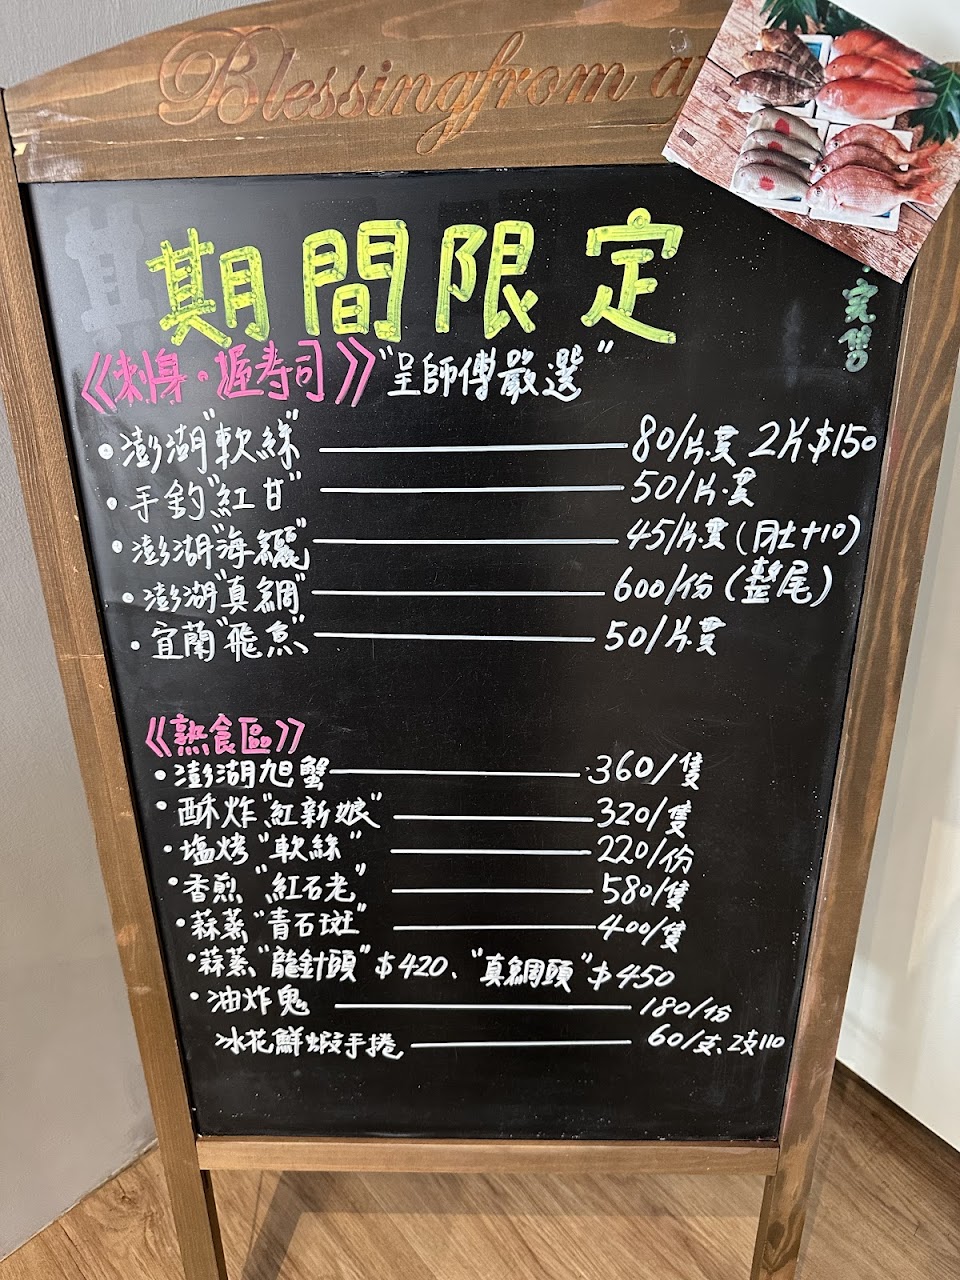 Blessingfrom a
期間限定
完售
《刺身。握寿司》"呈師傅嚴選"
•澎湖"軟絲" 80/片.貫 2片$150
•手釣"紅甘" 50/片.貫
•澎湖"海鱺" 45/片.貫(肚+10)
•澎湖"真鯛" 600/份(整尾)
•宜蘭"飛魚" 50/片.貫
《熟食區》
•澎湖旭蟹 360/隻
•酥炸"紅新娘" 320/隻
•塩烤"軟絲" 220/份
•香煎"紅石老" 580/隻
•蒜蒸"青石斑" 400/隻
•蒜蒸"龍針頭"$420、"真鯛頭"$450
•油炸鬼 180/份
冰花鮮蝦手捲 60/支、2支110